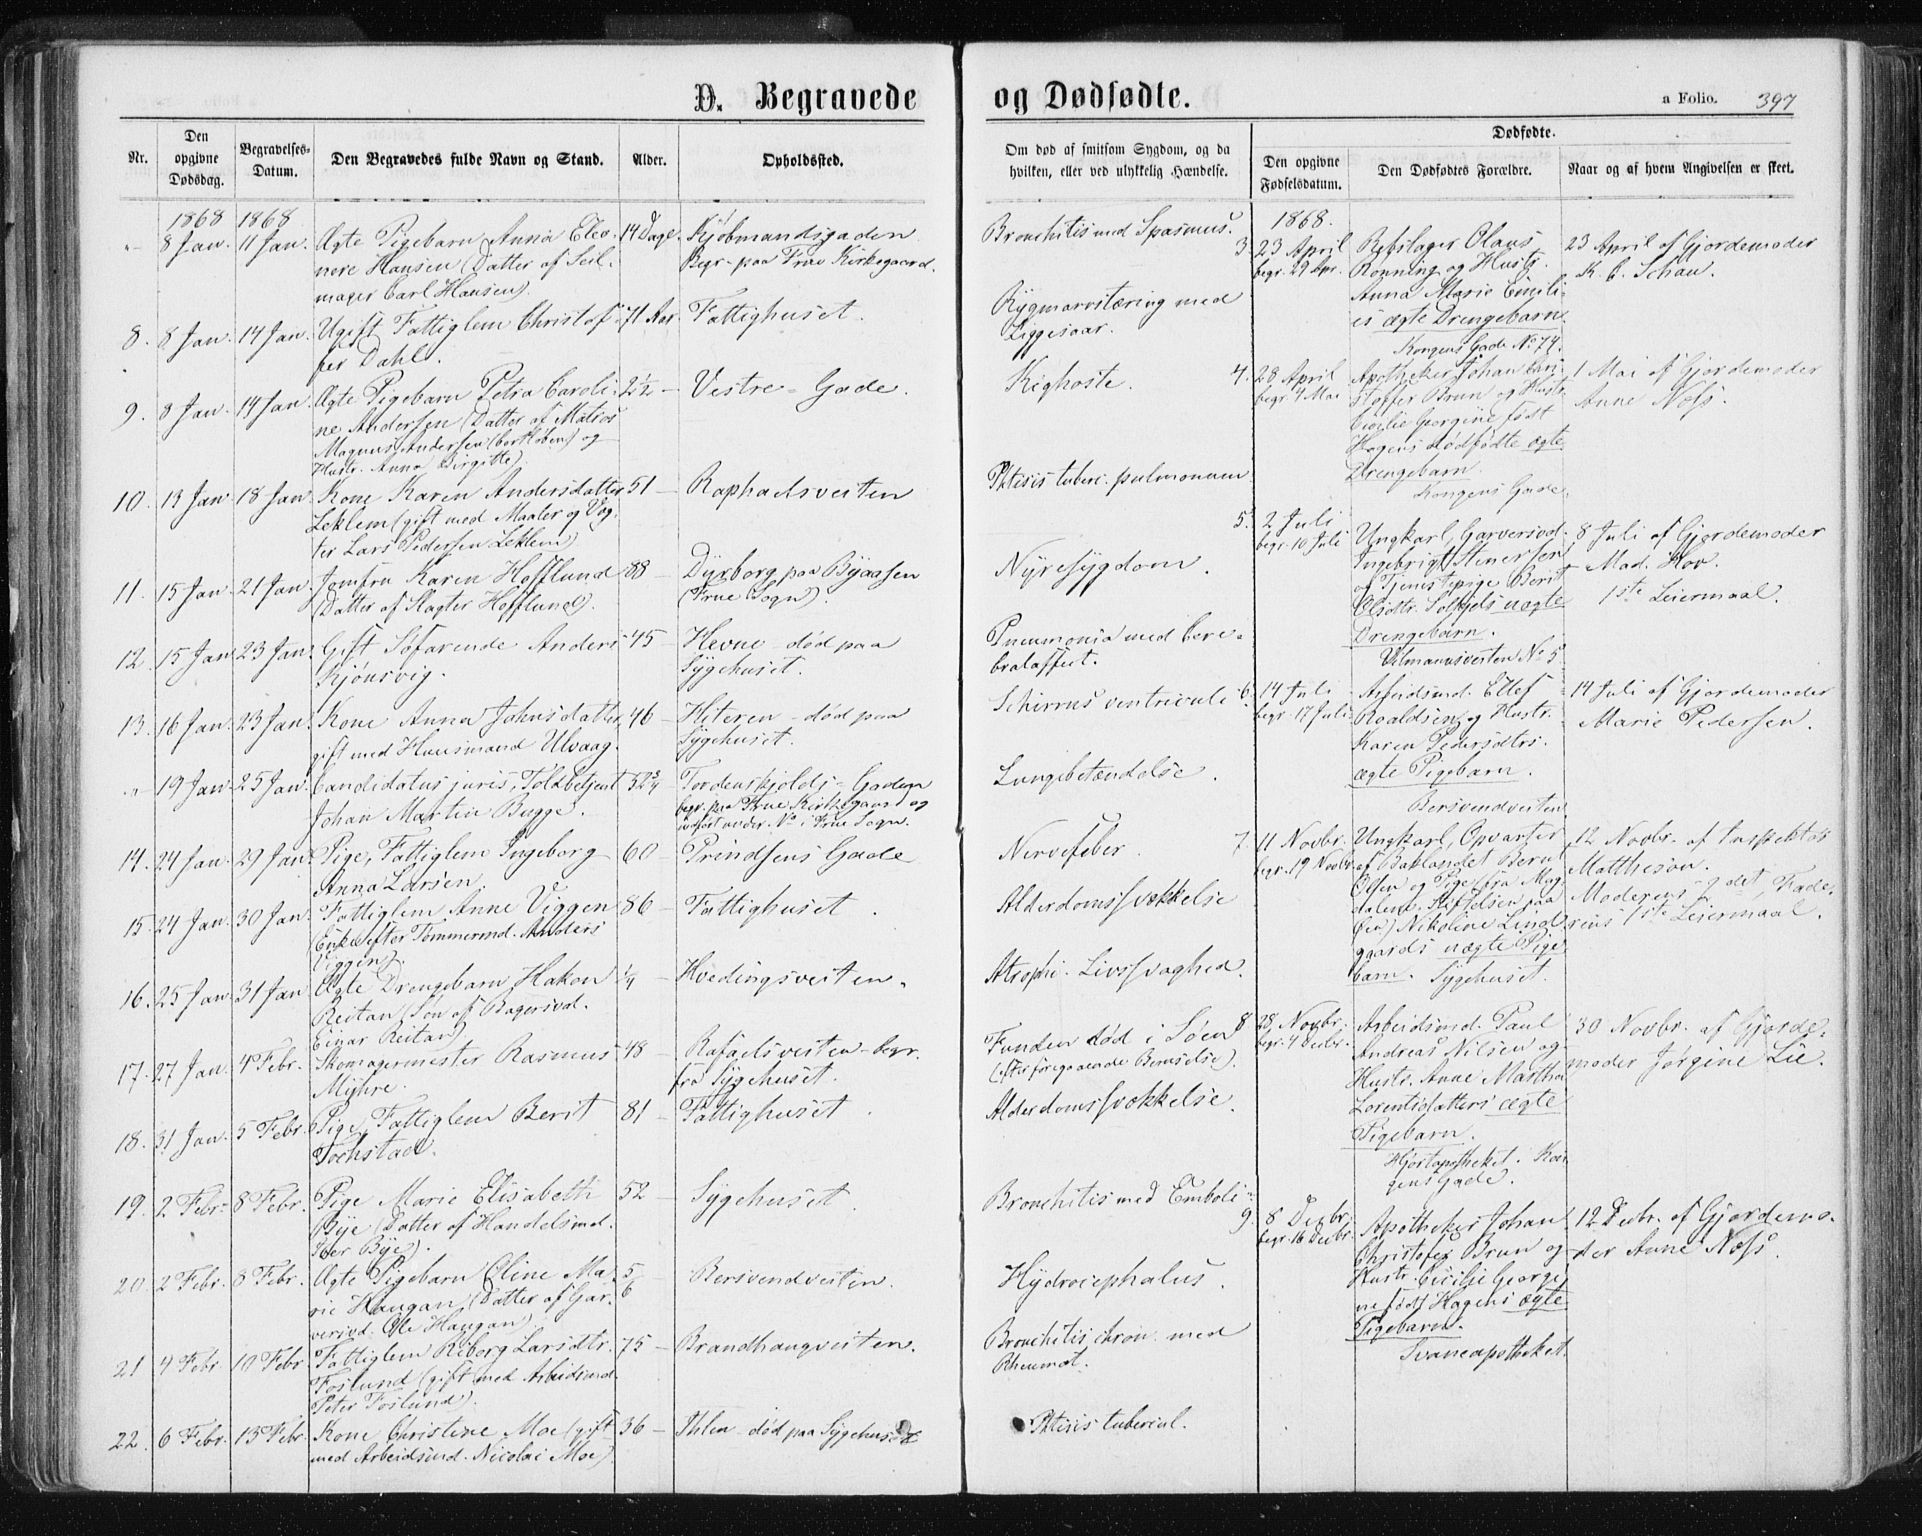 D. Begravede og Dødfødte.
a Folio. 397
Nr.
Den opgivne Dødsdag.
Begravelses-Datum.
Den Begravedes fulde Navn og Stand.
Alder.
Opholdssted.
Om død af smitsom Sygdom, og da hvilken, eller ved ulykkelig Hændelse.
Dødfødte.
Den opgivne Fødselsdatum.
Den Dødfødtes Forældre.
Naar og af hvem Angivelsen er skeet.
1868 1868
" 8 Jan. 11 Jan. Ægte Pigebarn Anna Eleo- 14 Dage. Kjøbmandsgaden Bronchitis med Spasmus.
nore Hansen (Datter af Seil- Begr. paa Frue Kirkegaard.
mager Carl Hansen).
8. 8 Jan. 14 Jan. Ugift Fattiglem Christof- 71 Aar. Fattighuset. Rygmarvstæring med
fer Dahl. Liggesaar.
9. 8 Jan. 14 Jan. Ægte Pigebarn Petra Caroli- 2½ — Vestre-Gade. Kighoste.
ne Andersen (Datter af Matros
Magnus Andersen (bortløben) og
Hustr. Anna Birgitte).
10. 13 Jan. 18 Jan. Kone Karen Andersdatter 51 — Raphaelsveiten Phtisis tuberc. pulmonum
Leklem (gift med Maaler og Vog-
ter Lars Pedersen Leklem)
11. 15 Jan. 21 Jan. Jomfru Karen Hofflund 88 — Dyrborg paa Byaasen Nyresygdom.
(Datter af Slagter Hofflund). (Frue Sogn).
12. 15 Jan. 23 Jan. Gift Søfarende Anders 45 — Hevne - død paa Pneumonia med Cere-
Kjønsvig. Sygehuset. bralaffect.
13. 16 Jan. 23 Jan. Kone Anna Johnsdatter, 46 — Hiteren - død paa Schirrus ventriculi
gift med Huusmand Ulvaag. Sygehuset.
" 19 Jan. 25 Jan. Candidatus juris, Toldbetjent 52¾ Tordenskjolds-Gaden Lungebetændelse.
Johan Martin Bugge. begr. paa Frue Kirkegaard og
indført under No i Frue Sogn.
14. 24 Jan. 29 Jan. Pige, Fattiglem Ingeborg 60 — Prindsens Gade Nervefeber.
Anna Larsen.
15. 24 Jan. 30 Jan. Fattiglem Anne Viggen 86 — Fattighuset. Alderdomssvækkelse
(Enke efter Tømmermd. Anders
Viggen).
16. 25 Jan. 31 Jan. Ægte Drengebarn Hakon ¼ — Hvedingsveiten. Atrophi. Livssvaghed.
Reitan (Søn af Bagersvd.
Einar Reitan)
17. 27 Jan. 4 Febr. Skomagermester Rasmus 48 — Rafaelsveiten - begr. Funden død i Søen
Myhre. fra Sygehuset. (efter foregaaende Beruselse).
18. 31 Jan. 5 Febr. Pige, Fattiglem Berit 81 — Fattighuset. Alderdomssvækkelse.
Tochstad.
19. 2 Febr. 8 Febr. Pige Marie Elisabeth 52 — Sygehuset. Bronchitis med Emboli
Bye (Datter af Handelsmd.
Iver Bye).
20. 2 Febr. 8 Febr. Ægte Pigebarn Eline Ma- 5/6 Bersvendveiten. Hydrocephalus.
rie Haugan (Datter af Gar-
versvd. Ole Haugan)
21 4 Febr. 10 Febr. Fattiglem Riborg Larsdtr. 75 — Brandhaugveiten. Bronchitis chron. med
Foslund (gift med Arbeidsmd. Rheumat.
Peter Foslund).
22. 6 Febr. 13 Febr. Kone Christine Moe (gift 36 — Ihlen - død paa Sygehuset Phtisis tubercul.
med Arbeidsmd. Nicolai Moe)
1868.
3. 23 April Rebslager Olaus 23 April af Gjordemoder
begr. 29 Apr. Rønning og Hustr. K. C. Schau.
Anna Marie Emili-
es ægte Drengebarn.
Kongens Gade No 74.
4. 28 April Apotheker Johan Chri- 1 Mai af Gjordemoder
begr. 4 Mai stoffer Brun og Hustr. Anne Næss.
Cecilie Georgine født
Hagens dødfødte ægte
Drengebarn.
Kongens Gade.
5. 2 Juli Ungkarl, Garversvd. 8 Juli af Gjordemoder
begr. 10 Juli Ingebrigt Stenersen Mad. Hov.
og Tjenestepige Berit 1ste Leiermaal.
Olsdtr. Solhjels uægte
Drengebarn.
Ulmanusveiten No 5
6. 14 Juli Arbeidsmd. Ellef 14 Juli af Gjordemoder
begr. 17 Juli Roaldsen og Hustr. Marie Pedersen.
Karen Pedersdtrs.
ægte Pigebarn.
Bersvendveiten
7. 11 Novbr. Ungkarl, Opvarter 12 Novbr. af Inspektør
begr. 19 Novbr. af Baklandet Bernt Matthesøn.
Olsen og Pige (fra Mag- Moderens 2det, Fade-
dalene Stiftelsen paa rens 1ste Leiermaal.
Nikoline Lind-
gaards uægte Pige-
barn. Sygehuset.
8 28 Novbr. Arbeidsmd. Paul 30 Novbr. af Gjorde-
begr. 4 Decbr. Andreas Nilsen og moder Jørgine Lie.
Hustr. Anne Martha
Lorentsdatters ægte
Pigebarn.
Hjortapotheket. Kon-
gens Gade.
9 8 Decbr. Apotheker Johan 12 Decbr. af Gjordemo-
begr. 16 Decbr. Christofer Brun og der Anne Næss.
Hustr. Cecilie Georgi-
ne født Hagens ægte
Pigebarn.
Svaneapotheket.